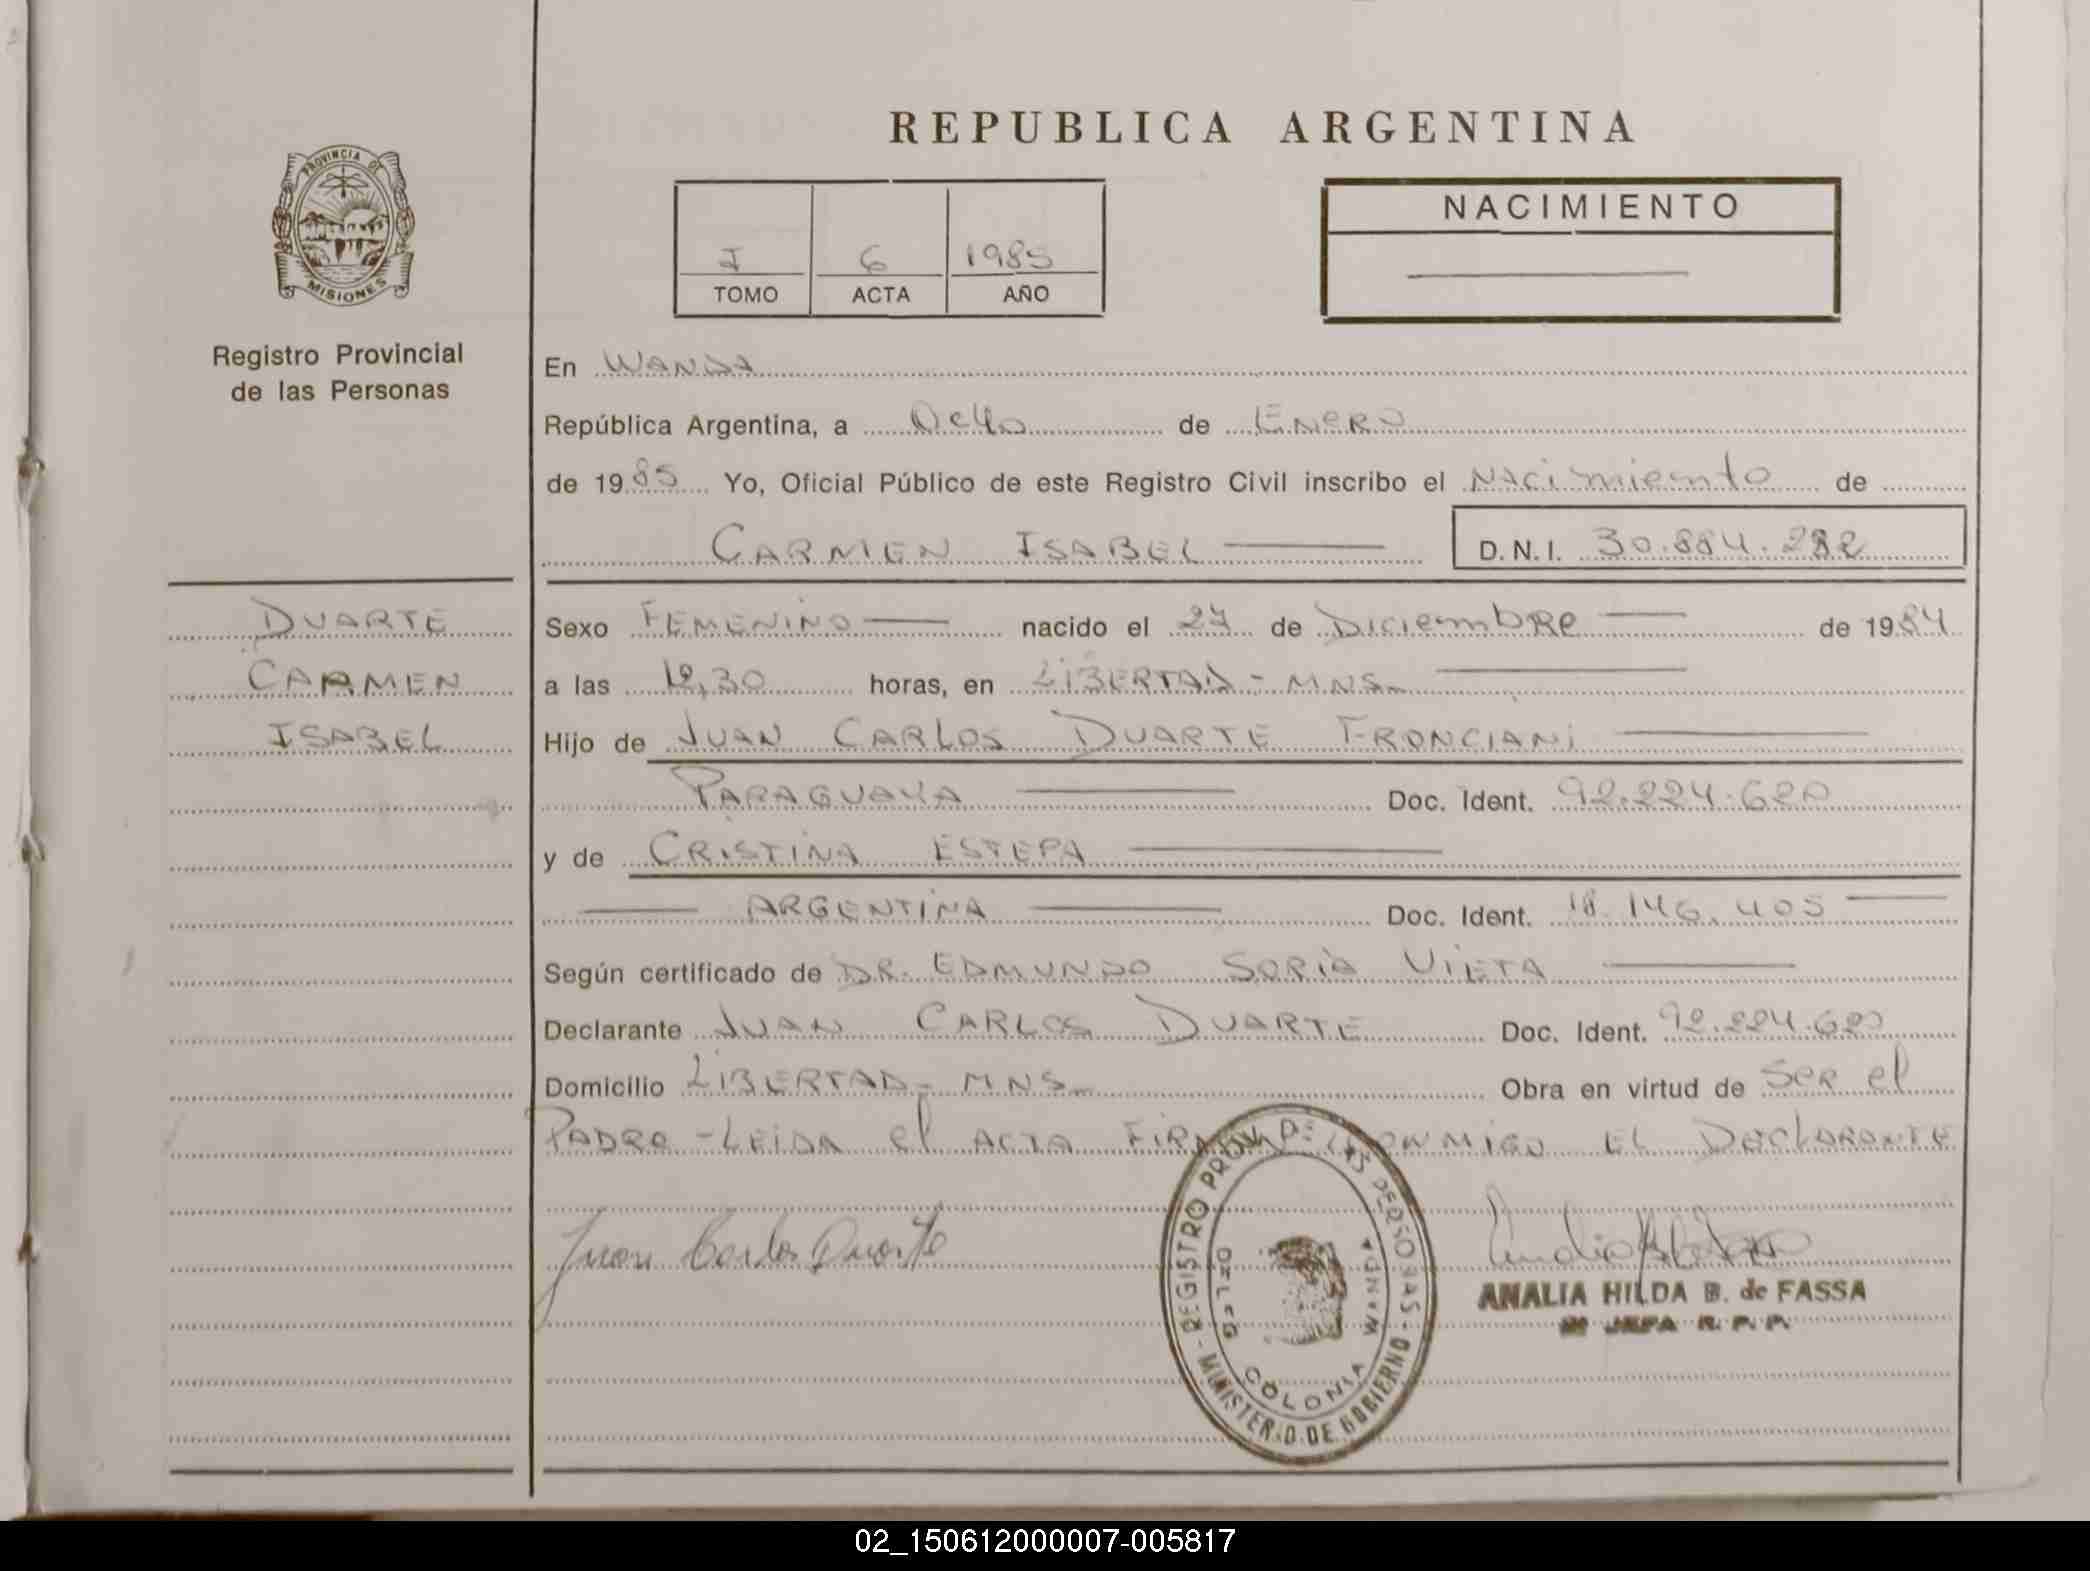 REPUBLICA ARGENTINA
PROVINCIA DE
MISIONES
Registro Provincial
de las Personas
I 6 1985
TOMO ACTA AÑO
NACIMIENTO
En WANDA
República Argentina, a Ocho de ENERO
de 1985 Yo, Oficial Público de este Registro Civil inscribo el Nacimiento de
CARMEN ISABEL D.N.I. 30.884.282
DUARTE
CARMEN
ISABEL
Sexo FEMENINO nacido el 27 de Diciembre de 1984
a las 12,30 horas, en LIBERTAD - MNS.
Hijo de JUAN CARLOS DUARTE FRONCIANI
PARAGUAYA Doc. Ident. 92.224.620
y de CRISTINA ESTEPA
ARGENTINA Doc. Ident. 18.146.405
Según certificado de DR. EDMUNDO SORIA VIETA
Declarante JUAN CARLOS DUARTE Doc. Ident. 92.224.620
Domicilio LIBERTAD - MNS. Obra en virtud de SER el
PADRE - LEIDA el ACTA CONMIGO EL DECLARANTE
Juan Carlos Duarte
REGISTRO PROV. DE LAS PERSONAS - MINISTERIO DE GOBIERNO
DELEG COLONIA WANDA
ANALIA HILDA B. de FASSA
JEFA R. P. P.
02_150612000007-005817